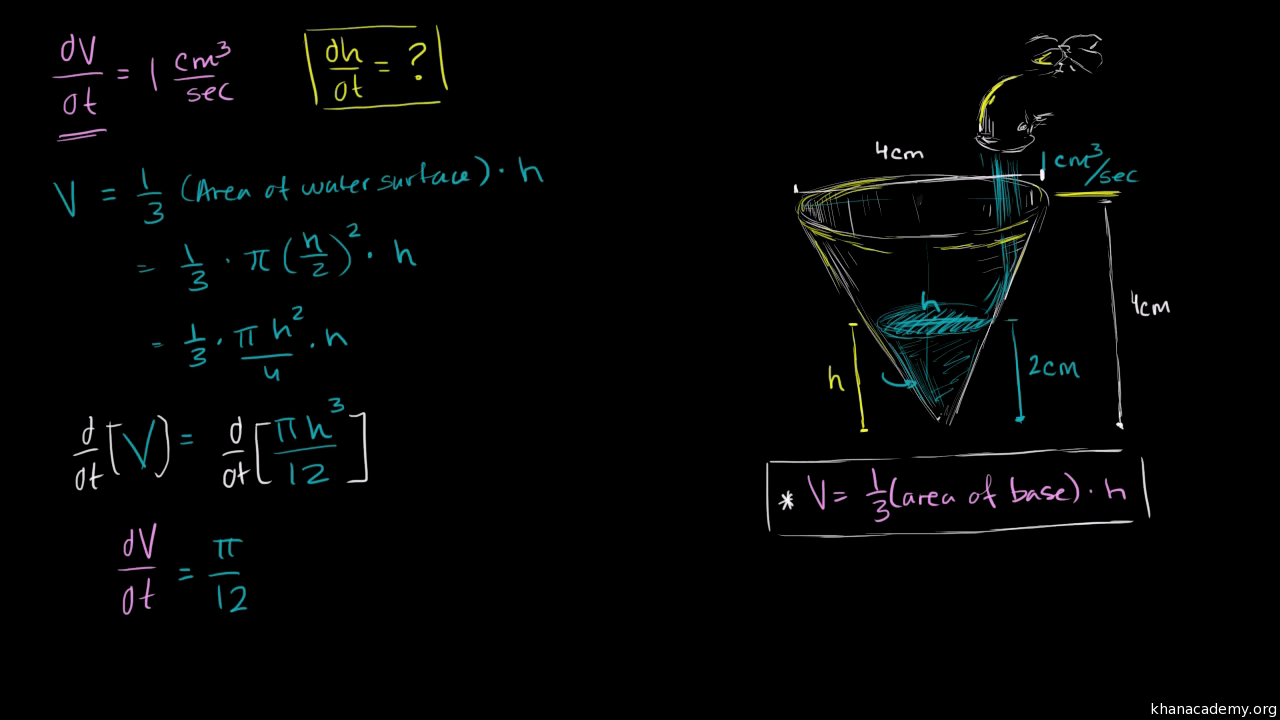 dV/dt = 1 cm³/sec
dh/dt = ?
V = 1/3 (Area of water surface) · h
= 1/3 · π (h/2)² · h
= 1/3 · πh²/4 · h
d/dt [V] = d/dt [πh³/12]
dV/dt = π/12
4cm
1 cm³/sec
4cm
h
h
2cm
* V = 1/3 (area of base) · h
khanacademy.org